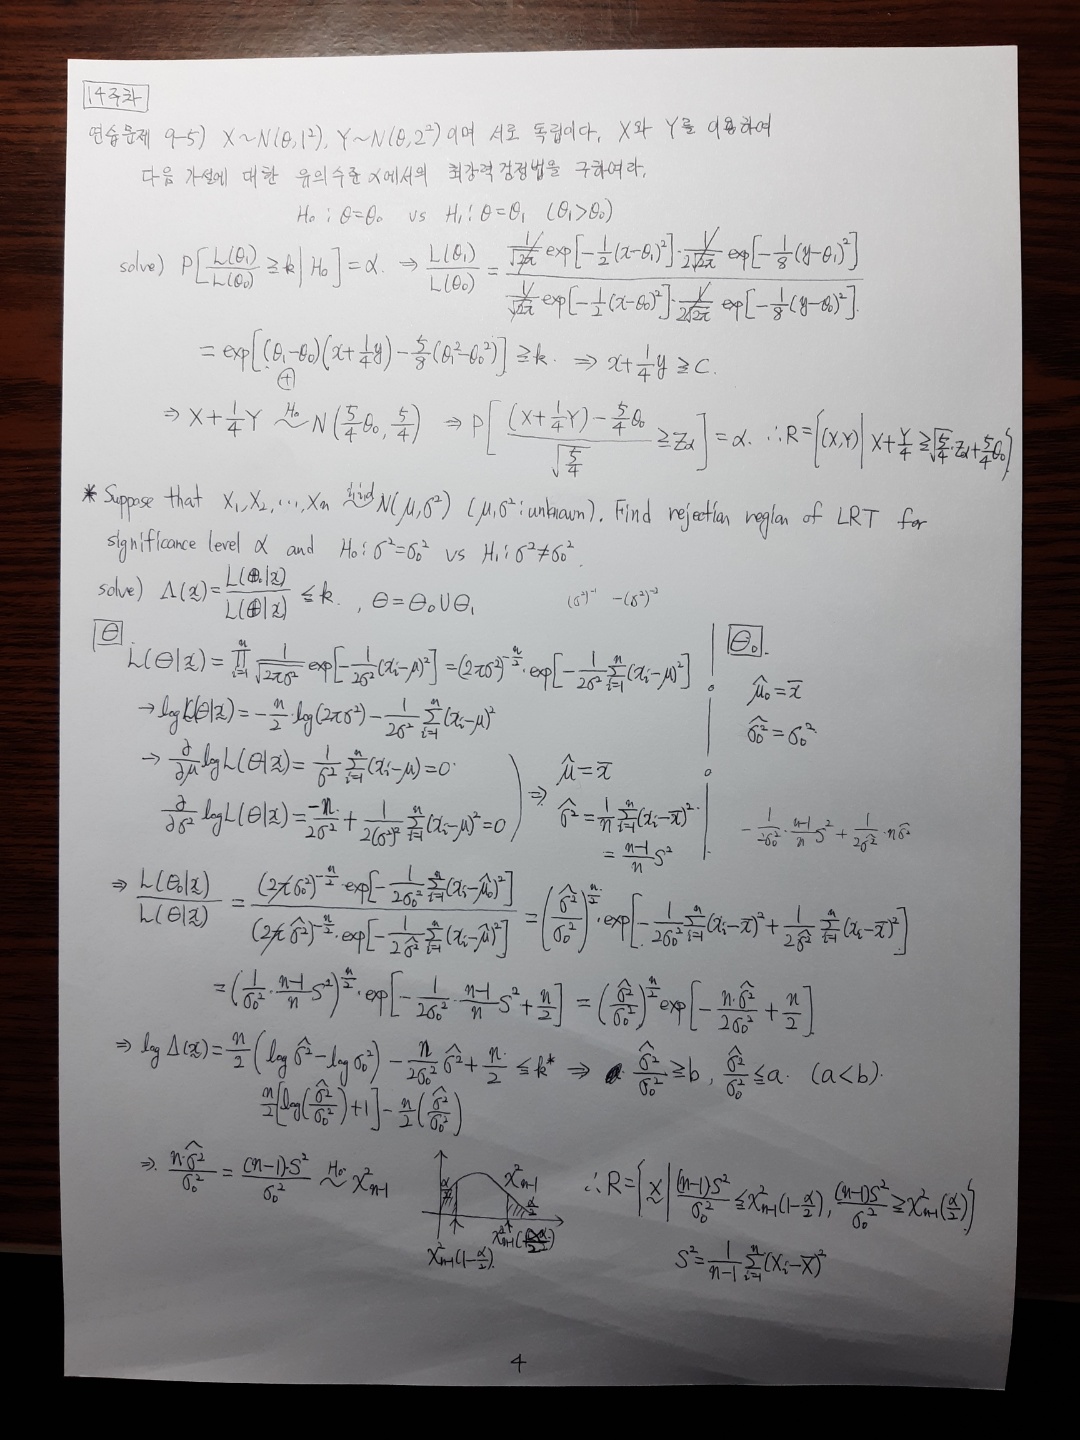 14주차
연습문제 9-5) X~N(θ,1²), Y~N(θ,2²)이며 서로 독립이다. X와 Y를 이용하여
다음 가설에 대한 유의수준 α에서의 최강력검정법을 구하여라.
H₀: θ=θ₀ vs H₁: θ=θ₁ (θ₁>θ₀)
solve) P[L(θ₁)/L(θ₀) ≧ k | H₀] = α. ⇒ L(θ₁)/L(θ₀) = (1/√2π exp[-1/2(x-θ₁)²]·1/2√2π exp[-1/8(y-θ₁)²]) / (1/√2π exp[-1/2(x-θ₀)²]·1/2√2π exp[-1/8(y-θ₀)²]).
= exp[(θ₁-θ₀)(x+1/4y) - 5/8(θ₁²-θ₀²)] ≧ k. ⇒ x+1/4y ≧ C.
⊕
⇒ X+1/4Y ~H₀ N(5/4θ₀, 5/4) ⇒ P[((X+1/4Y) - 5/4θ₀)/√(5/4) ≧ Zα] = α. ∴ R = {(X,Y) | X+Y/4 ≧ √(5/4)·Zα + 5/4θ₀}
* Suppose that X₁, X₂, ..., Xn ~i.i.d N(μ,σ²) (μ,σ²: unknown). Find rejection region of LRT for
significance level α and H₀: σ²=σ₀² vs H₁: σ²≠σ₀².
solve) Λ(x) = L(Θ₀|x)/L(Θ|x) ≦ k. , Θ = Θ₀∪Θ₁ (σ²)⁻¹ -(σ²)⁻²
Θ
L(Θ|x) = ∏ᵢ₌₁ⁿ 1/√(2πσ²) exp[-1/2σ²(xᵢ-μ)²] = (2πσ²)^(-n/2)·exp[-1/2σ² Σᵢ₌₁ⁿ(xᵢ-μ)²]
→ logL(Θ|x) = -n/2·log(2πσ²) - 1/2σ² Σᵢ₌₁ⁿ(xᵢ-μ)²
→ ∂/∂μ logL(Θ|x) = 1/σ² Σᵢ₌₁ⁿ(xᵢ-μ) = 0
∂/∂σ² logL(Θ|x) = -n/2σ² + 1/2(σ²)² Σᵢ₌₁ⁿ(xᵢ-μ)² = 0
⇒ μ̂ = x̄
σ̂² = 1/n Σᵢ₌₁ⁿ(xᵢ-x̄)²
= n-1/n S²
Θ₀.
μ̂₀ = x̄
σ̂₀² = σ₀²
-1/2σ₀²·n-1/n S² + 1/2σ̂²·nσ̂²
⇒ L(Θ₀|x)/L(Θ|x) = ((2πσ₀²)^(-n/2)·exp[-1/2σ₀² Σᵢ₌₁ⁿ(xᵢ-μ̂₀)²]) / ((2πσ̂²)^(-n/2)·exp[-1/2σ̂² Σᵢ₌₁ⁿ(xᵢ-μ̂)²]) = (σ̂²/σ₀²)^(n/2)·exp[-1/2σ₀² Σᵢ₌₁ⁿ(xᵢ-x̄)² + 1/2σ̂² Σᵢ₌₁ⁿ(xᵢ-x̄)²]
= (1/σ₀²·n-1/n S²)^(n/2)·exp[-1/2σ₀²·n-1/n S² + n/2] = (σ̂²/σ₀²)^(n/2) exp[-n·σ̂²/2σ₀² + n/2]
⇒ logΛ(x) = n/2(logσ̂² - logσ₀²) - n/2σ₀² σ̂² + n/2 ≦ k* ⇒ σ̂²/σ₀² ≧ b, σ̂²/σ₀² ≦ a. (a<b).
n/2[log(σ̂²/σ₀²)+1] - n/2(σ̂²/σ₀²)
⇒ n·σ̂²/σ₀² = (n-1)·S²/σ₀² ~H₀ χ²n-1
α/2 χ²n-1 α/2
χ²n-1(1-α/2). χ²n-1
∴ R = {X | (n-1)S²/σ₀² ≦ χ²n-1(1-α/2), (n-1)S²/σ₀² ≧ χ²n-1(α/2)}
S² = 1/n-1 Σᵢ₌₁ⁿ(Xᵢ-X̄)²
4